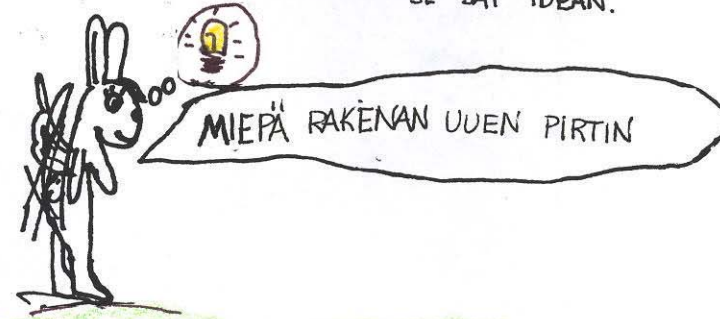 IDEAN.
MIEPÄ RAKENAN UUEN PIRTIN